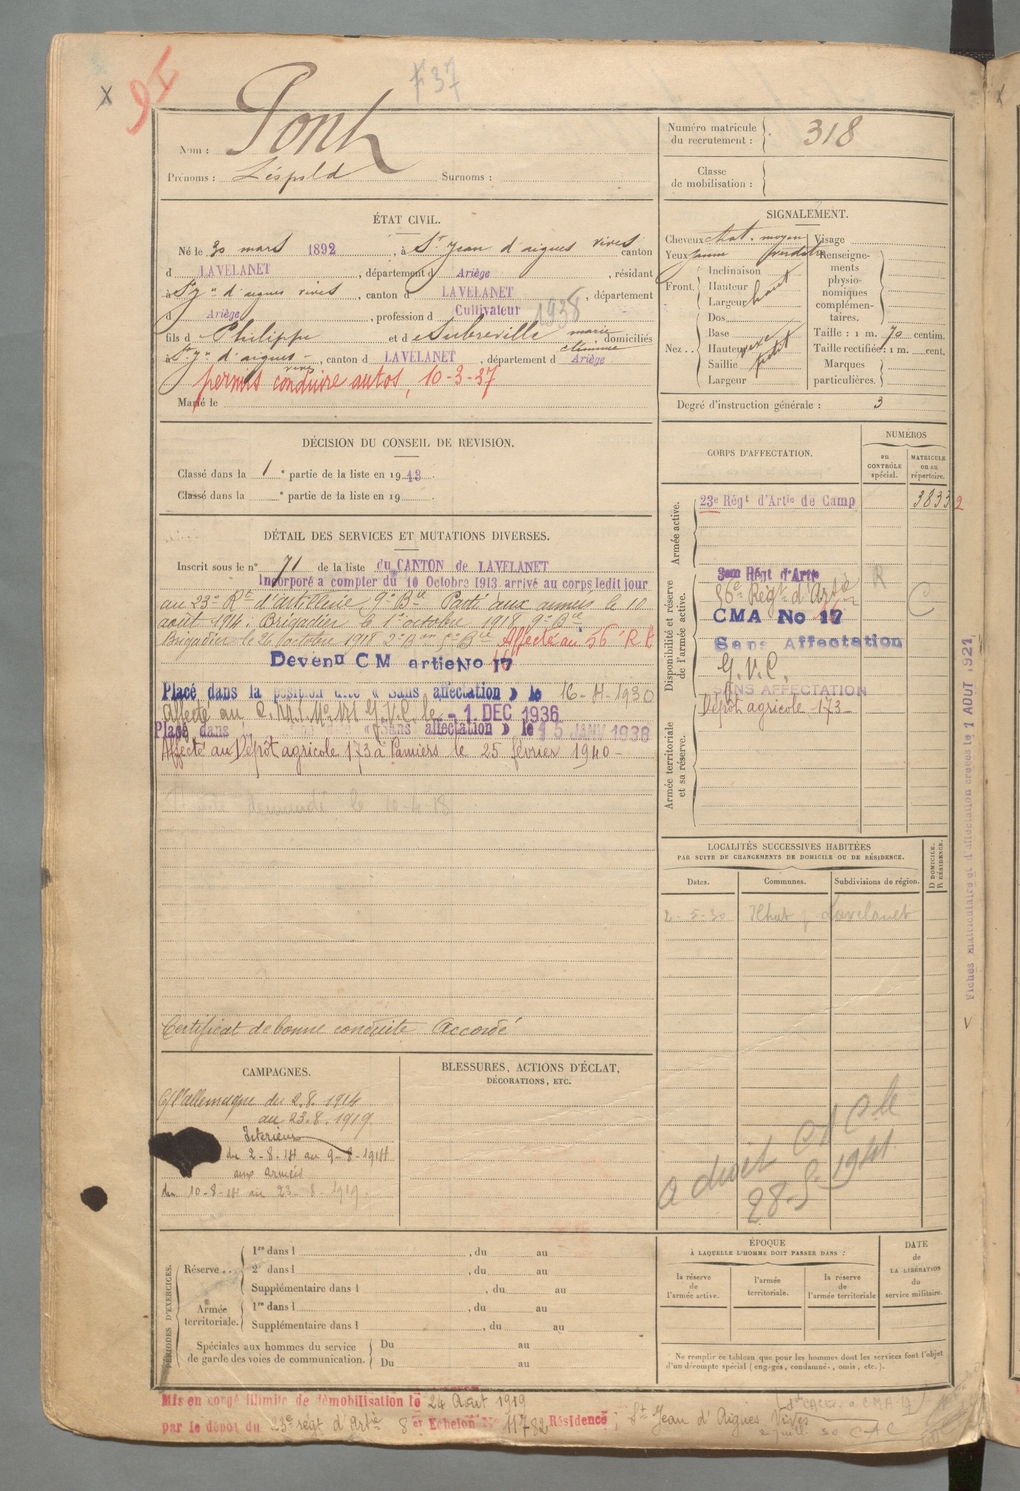 X
F 37
Nom : Pont
Prénoms : Léopold Surnoms :
Numéro matricule du recrutement : 318
Classe de mobilisation :
ÉTAT CIVIL.
Né le 30 mars 1892, à St Jean d'aigues vives canton
d LAVELANET, département d Ariège, résidant
à St Jn d'aigues vives, canton d LAVELANET, département
d Ariège, profession d Cultivateur 1938
fils d Philippe et d Aubreville marie domiciliés
à St Jn d'aigues-vives, canton d LAVELANET, département d Ariège
permis conduire autos, 10-3-37
Marié le
SIGNALEMENT.
Cheveux chat. moyen Visage
Yeux jaune verdâtre Renseignements physionomiques complémentaires.
Front. Inclinaison
Hauteur haut
Largeur
Nez.. Dos
Base
Hauteur
Saillie
Largeur
Taille : 1 m. 70 centim.
Taille rectifiée : 1 m. cent.
Marques particulières.
Degré d'instruction générale : 3
DÉCISION DU CONSEIL DE RÉVISION.
Classé dans la 1e partie de la liste en 1913.
Classé dans la e partie de la liste en 19
DÉTAIL DES SERVICES ET MUTATIONS DIVERSES.
Inscrit sous le n° 71 de la liste du CANTON de LAVELANET
Incorporé a compter du 10 Octobre 1913 arrivé au corps ledit jour
au 23e Rt d'artillerie, 9e Bie Parti aux armées le 10
août 1914. Brigadier le 1er octobre 1918 9e Bie
Brigadier le 26 octobre 1918 Affecté au 56e R t
Devenu C M artie No 17
Placé dans la position dite « Sans affectation » le 16-4-1930
Affecté au C. M. G.V.C. le - 1 DEC 1936
Placé dans Sans affectation » le 15 JANV 1938
Affecté au Dépôt agricole 173 à Pamiers le 25 février 1940-
Certificat de bonne conduite Accordé
CORPS D'AFFECTATION.
NUMÉROS
au CONTRÔLE spécial.
MATRICULE ou au répertoire.
Armée active.
23e Régt d'Artie de Camp 3833 2
Disponibilité et réserve de l'armée active.
56e Régt d'Artie R C
CMA No 17
Sans Affectation
G.V.C.
SANS AFFECTATION
Dépôt agricole 173-
Armée territoriale et sa réserve.
LOCALITÉS SUCCESSIVES HABITÉES
PAR SUITE DE CHANGEMENTS DE DOMICILE OU DE RÉSIDENCE.
Dates. Communes. Subdivisions de région. D DOMICILE. R RÉSIDENCE.
2-5-30 Ilhat p Lavelanet
Fiches matriculaire et d'affectation créées le 1 AOUT 1921
CAMPAGNES.
C/ l'allemagne du 2.8.1914
au 23.8.1919.
Intérieur
du 2-8-14 au 9-8-1914
aux armées
du 10-8-14 au 23-8-1919.
BLESSURES, ACTIONS D'ÉCLAT,
DÉCORATIONS, ETC.
a droit C d C le
28-5-1941
PÉRIODES D'EXERCICES.
Réserve... 1re dans l , du au
2e dans l , du au
Supplémentaire dans l , du au
Armée territoriale. 1re dans l , du au
Supplémentaire dans l , du au
Spéciales aux hommes du service de garde des voies de communication. Du au
Du au
ÉPOQUE
À LAQUELLE L'HOMME DOIT PASSER DANS :
la réserve de l'armée active.
l'armée territoriale.
la réserve de l'armée territoriale
DATE de LA LIBÉRATION du service militaire.
Ne remplir ce tableau que pour les hommes dont les services font l'objet
d'un décompte spécial (engagés, condamnés, omis, etc.).
Mis en congé illimité de démobilisation le 24 Août 1919
par le dépôt du 23e régt d'Artie 8e Echelon No 11782 Résidence : St Jean d'Aigues Vives